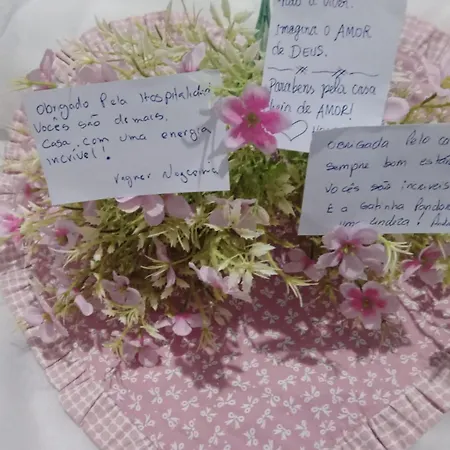 Obrigado Pela Hospitalidad
Vocês são demais.
Casa com uma energia
incrível!
Vagner
a viver.
Imagina o AMOR
de DEUS.
Parabéns pela casa
de AMOR!
Obrigada Pelo
sempre bom
Vocês são incríveis
E a Gatinha Pandor
um lindeza!